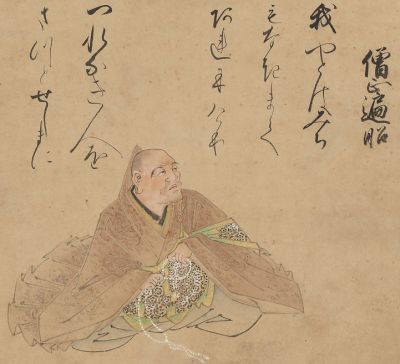 僧正遍昭
我やとはみち
もなきまて
あれにけり
つれなき人を
まつとせしまに